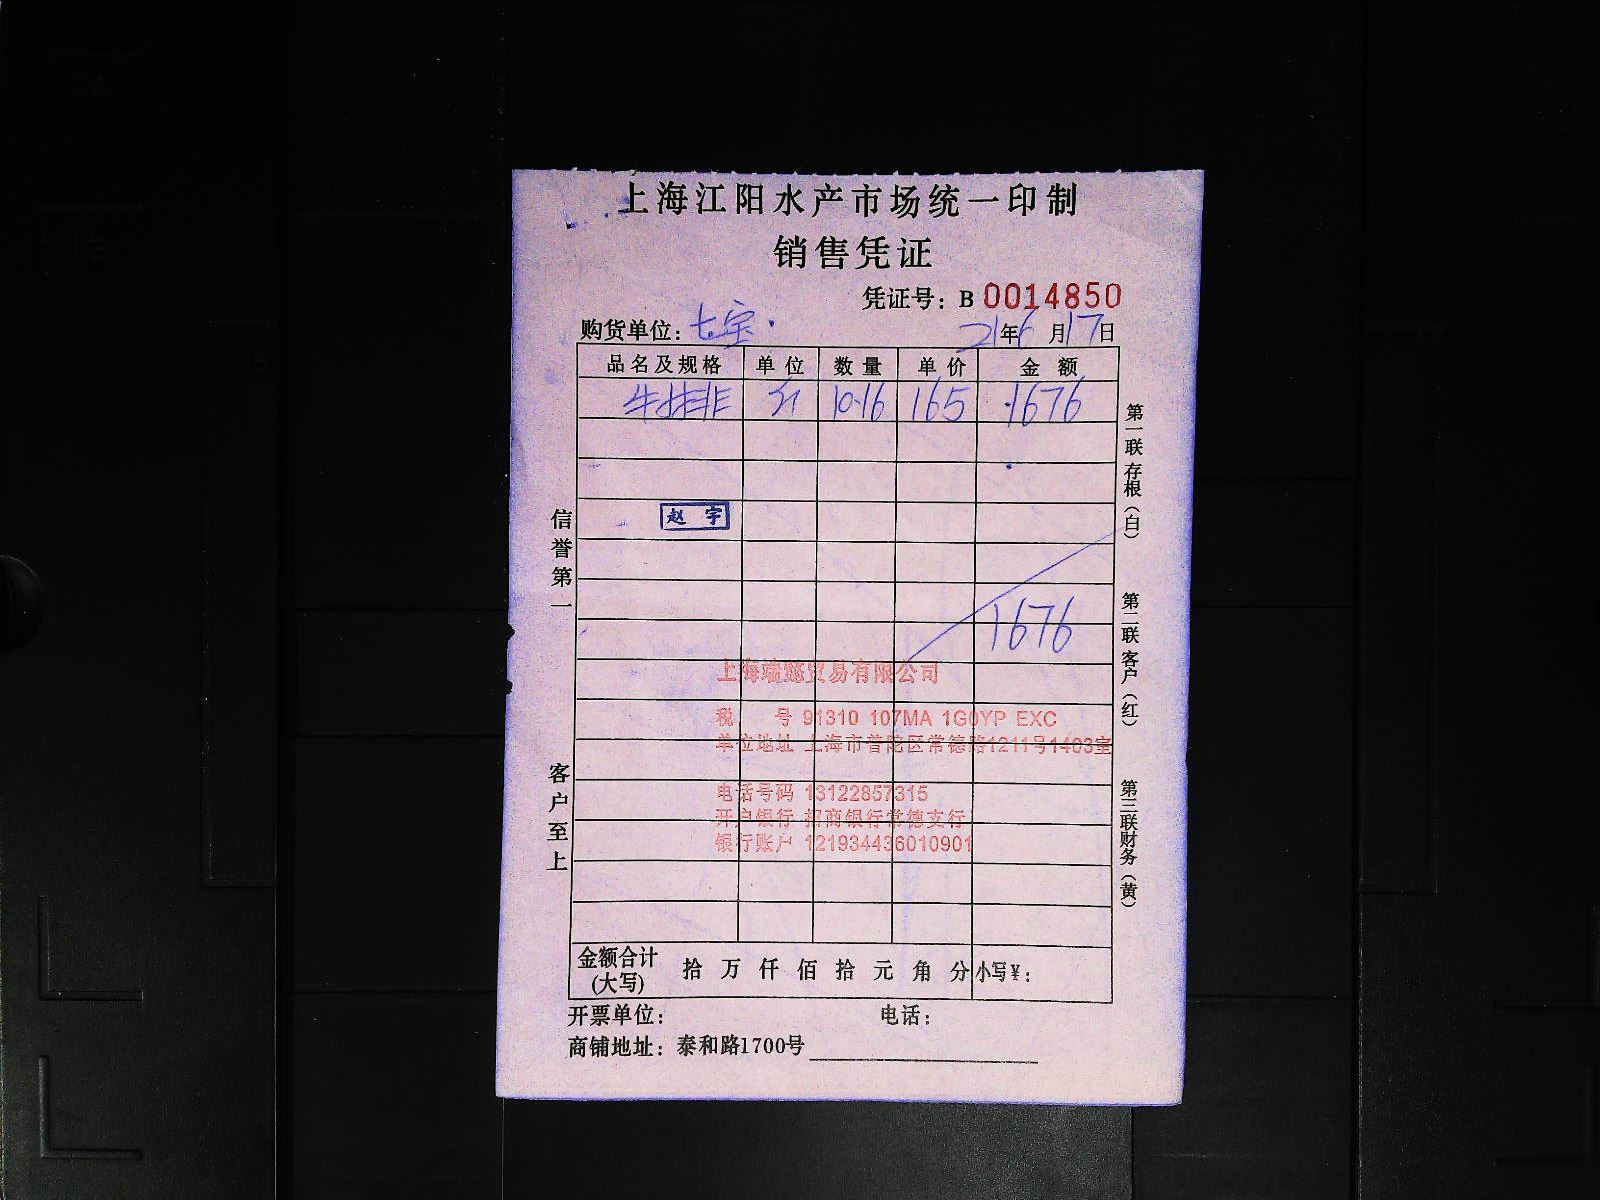 上海江阳水产市场统一印制
销售凭证
凭证号：B 0014850
购货单位：七宝 21年6月17日
品名及规格 单位 数量 单价 金额
牛排 斤 10.16 165 1676
赵宇
1676
信誉第一
客户至上
第一联存根（白）
第二联客户（红）
第三联财务（黄）
上海端懿贸易有限公司
税 号 91310 107MA 1G0YP EXC
单位地址 上海市普陀区常德路1211号1403室
电话号码 13122857315
开户银行 招商银行常德支行
银行账户 121934436010901
金额合计(大写) 拾 万 仟 佰 拾 元 角 分 小写¥：
开票单位： 电话：
商铺地址：泰和路1700号